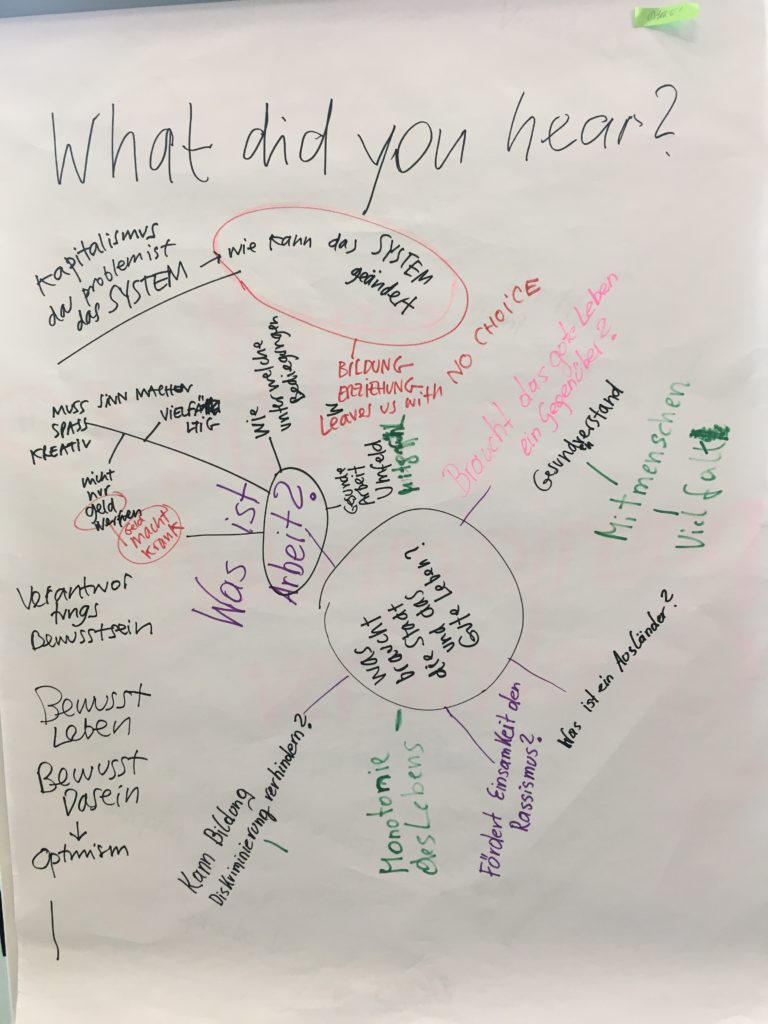 What did you hear?
Kapitalismus
das problem ist
das SYSTEM →
wie kann das SYSTEM
geändert
BILDUNG
ERZIEHUNG
Leaves us with NO CHOICE
Wie
unter welche
Bediegungen
MUSS SINN MACHEN
SPASS
KREATIV
VIELFÄL
LTIG
nicht
nur
geld
Geld
macht
krank
Was ist
Arbeit?
Gesunde
Arbeit
Umfeld
Braucht das gute Leben
ein Gegenüber?
Gesundverstand
Mitmenschen
Vielfalt
was
braucht
die Stadt
und das
Gute Leben?
Verantwor
tungs
Bewusstsein
Bewusst
Leben
Bewusst
Dasein
↓
Optmism
Kann Bildung
Diskriminierung verhindern?
Monotomie
des Lebens
Fördert Einsamkeit den
Rassismus?
Was ist ein Ausländer?